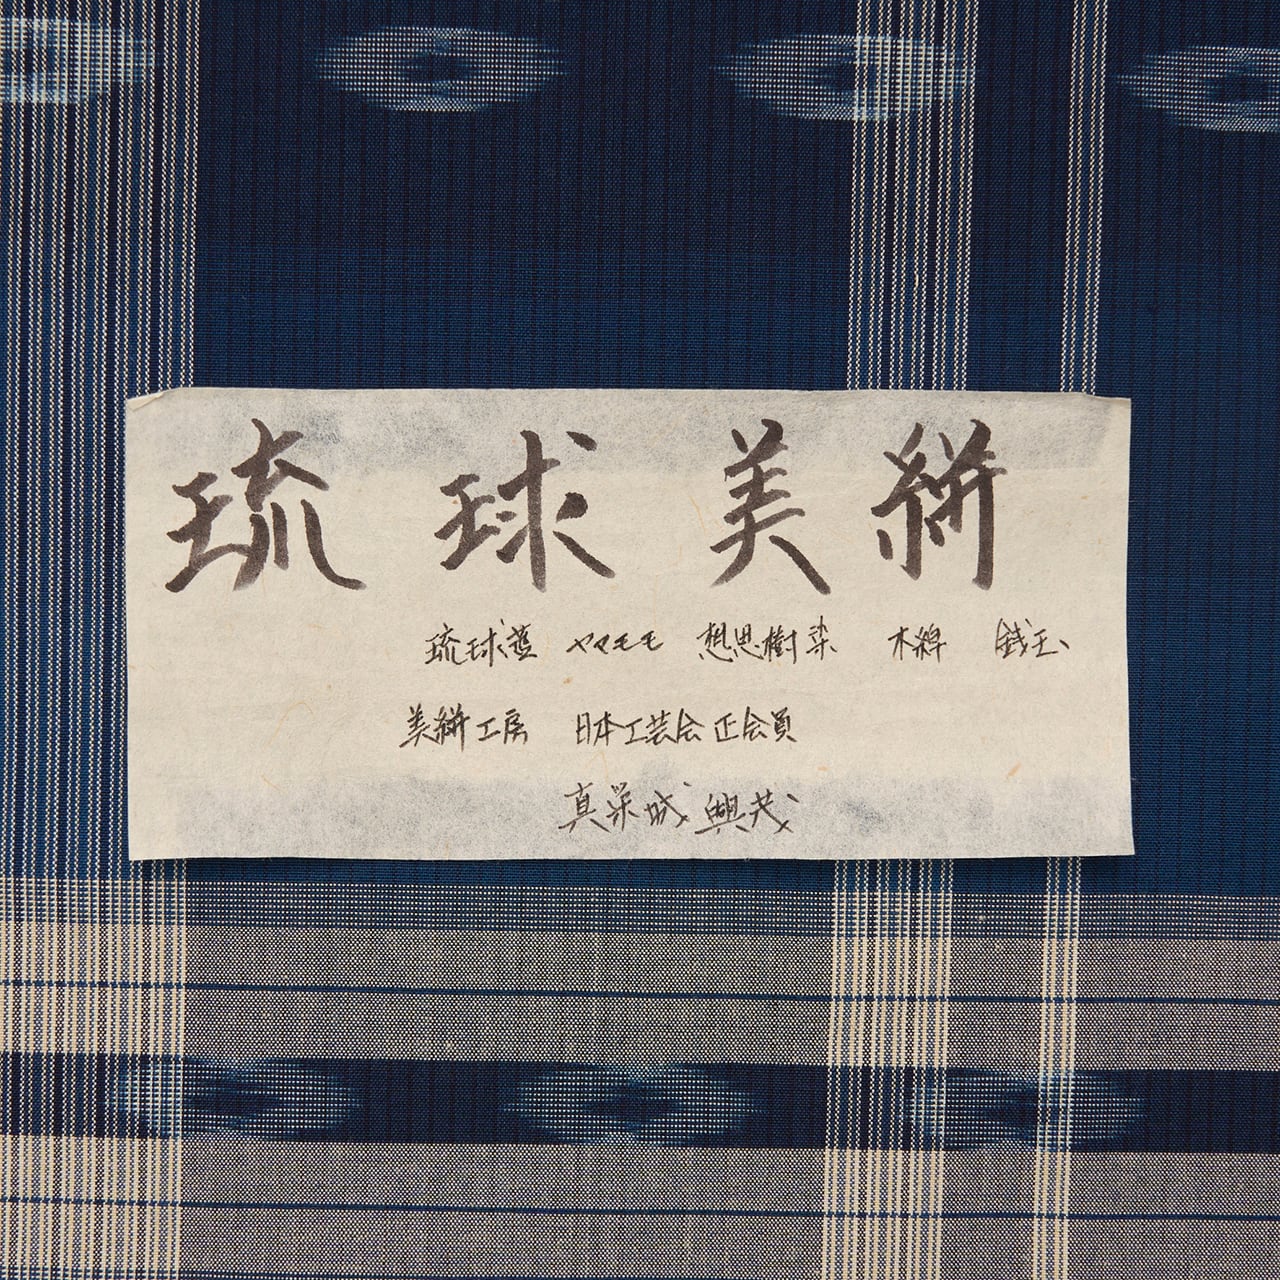 琉球美絣
琉球藍 ヤマモモ 想思樹染 木綿 銭玉
美絣工房 日本工芸会正会員
真栄城興茂